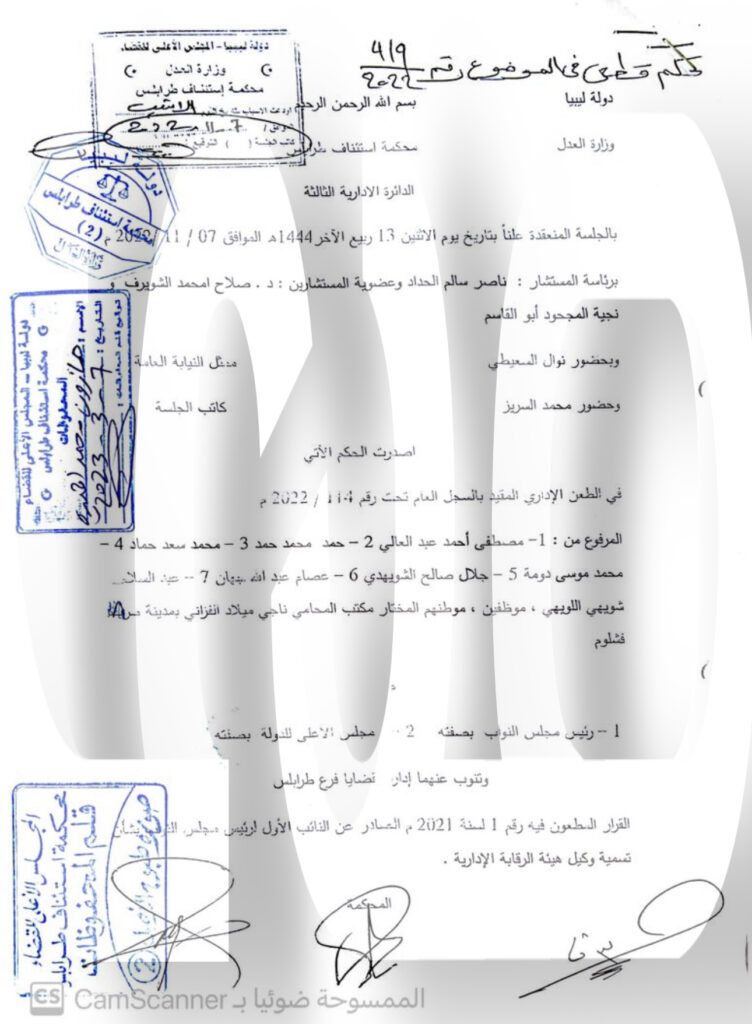 حكم قطعي في الموضوع رقم 419/2022
دولة ليبيا – المجلس الأعلى للقضاء
وزارة العدل
محكمة إستئناف طرابلس
اودعت الاسباب بتاريخ
الاثنين
7-11-2022
كاتب الجلسة ( ) التوقيع
بسم الله الرحمن الرحيم
دولة ليبيا
وزارة العدل
محكمة استئناف طرابلس
الدائرة الادارية الثالثة
دولة ليبيا
محكمة استئناف طرابلس
(2)
بالجلسة المنعقدة علناً بتاريخ يوم الاثنين 13 ربيع الآخر1444هـ الموافق 07 / 11 / 2022 م
برئاسة المستشار : ناصر سالم الحداد وعضوية المستشارين : د . صلاح امحمد الشويرف و
نجية المجحود أبو القاسم
وبحضور نوال المعيطي
ممثل النيابة العامة
وحضور محمد السريز
كاتب الجلسة
دولة ليبيا – المجلس الأعلى للقضاء
محكمة استئناف طرابلس
المحفوظات
الاسم :
التاريخ : 7-3-2023
اصدرت الحكم الأتي
في الطعن الإداري المقيد بالسجل العام تحت رقم 114 / 2022 م
المرفوع من : 1- مصطفى أحمد عبد العالي 2 – حمد محمد حمد 3 – محمد سعد حماد 4 –
محمد موسى دومة 5 – جلال صالح الشويهدي 6 – عصام عبد الله جهان 7 – عبد السلام
شويهي اللويهي ، موظفين ، موطنهم المختار مكتب المحامي ناجي ميلاد الفزاني بمدينة
فشلوم
1 – رئيس مجلس النواب بصفته 2 مجلس الاعلى للدولة بصفته
وتنوب عنهما إدارة قضايا فرع طرابلس
القرار المطعون فيه رقم 1 لسنة 2021 م الصادر عن النائب الأول لرئيس مجلس النواب بشأن
تسمية وكيل هيئة الرقابة الإدارية .
المحكمة
المجلس الأعلى للقضاء
محكمة استئناف طرابلس
قلم المحفوظات
صورة طبق الأصل
2
CS الممسوحة ضوئيا بـ CamScanner